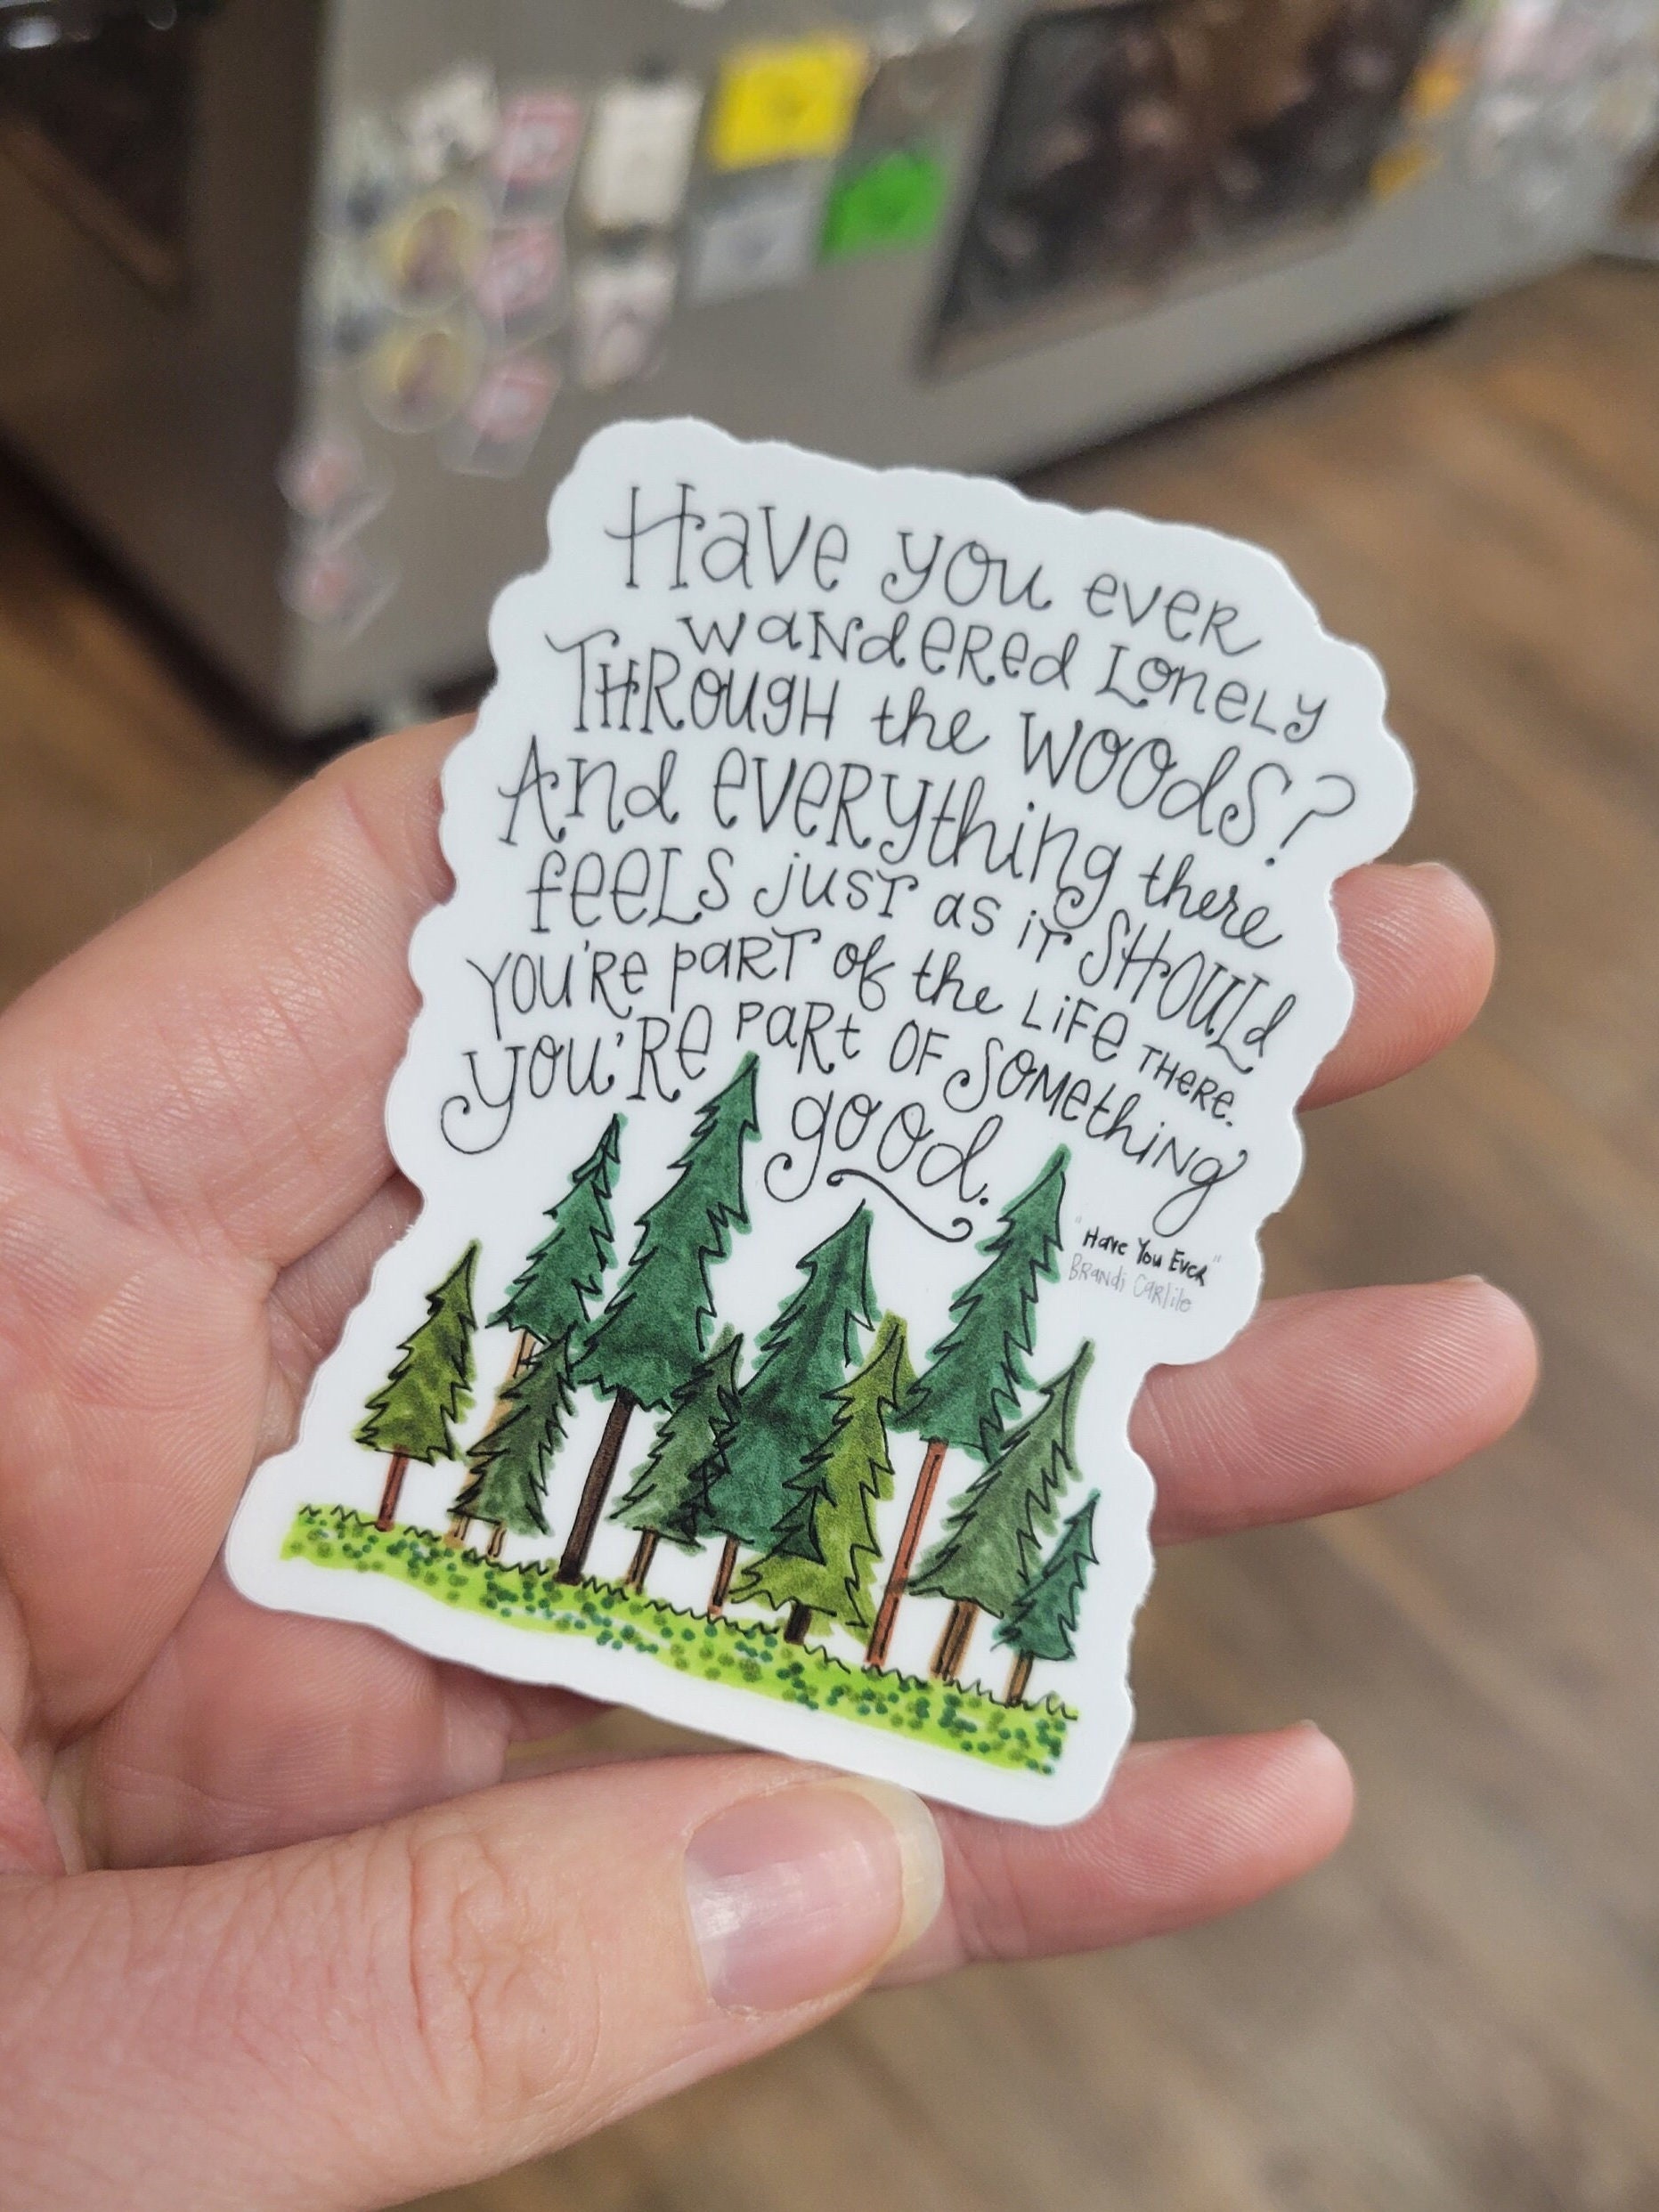 Have you ever
wandered lonely
THROUGH the WOODS?
And everything there
feels just as it SHOULD
YOU'RE part of the LIFE THERE.
YOU'RE part OF Something
good.
"Have You Ever"
Brandi Carlile